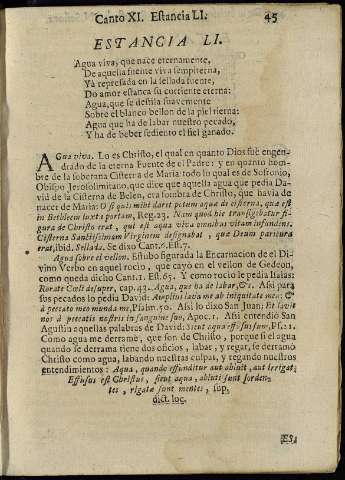 Canto XI. Estancia LI. 45
ESTANCIA LI.
Agua viva, que nace eternamente,
De aquella fuente viva sempiterna,
Yà represada en la sellada fuente,
Do amor estanca su corriente eterna:
Agua, que se destila suavemente
Sobre el blanco vellon de la piel tierna:
Agua que ha de labar nuestro pecado,
Y ha de beber sediento el fiel ganado.
AGua viva. Lo es Christo, el qual en quanto Dios fuè engen-
drado de la eterna Fuente de el Padre: y en quanto hom-
bre de la soberana Cisterna de Maria: todo lo qual es de Sofronio,
Obispo Jerosolimitano, que dice que aquella agua que pedia Da-
vid de la Cisterna de Belen, era sombra de Christo, que havia de
nacer de Maria: O si quis mihi daret potum aquæ de cisterna, quæ est
in Bethleem iuxta portam, Reg. 23. Nam quod hic transfigebatur fi-
gura de Christo erat, qui est aqua viva omnibus vitam infundens.
Cisterna Sanctissimam Virginem designabat, quæ Deum paritura
erat, ibid. Sellada. Se dixo Cant. Est. 7.
Agua sobre el vellon. Estubo figurada la Encarnacion de el Di-
vino Verbo en aquel rocio, que cayò en el vellon de Gedeon,
como queda dicho Cant. 1. Est. 65. Y como rocio le pedia Isaìas:
Rorate Cœli desuper, cap. 43. Agua, que ha de labar, &c. Assi para
sus pecados lo pedia David: Amplius lava me ab iniquitate mea: &
à peccato meo munda me, Psalm. 50. Assi lo dixo San Juan: Et lavit
nos à peccatis nostris in sanguine suo, Apoc. 1. Assi entendiò San
Agustin aquellas palabras de David: Sicut aqua effusus sum, Ps. 21.
Como agua me derramè, que son de Christo, porque si el agua
quando se derrama tiene dos oficios, labar, y regar, se derramò
Christo como agua, labando nuestras culpas, y regando nuestros
entendimientos: Aqua, quando effunditur aut abluit, aut irrigat:
Effusus est Christus, sicut aqua, abluti sunt sorden-
tes, rigatæ sunt mentes, sup.
dict. loc.
ES-